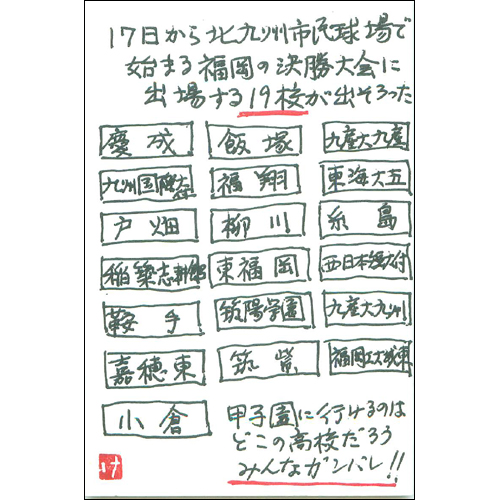 17日から北九州市民球場で
始まる福岡の決勝大会に
出場する19校が出そろった
慶成 飯塚 九産大九産
九州国際大 福翔 東海大五
戸畑 柳川 糸島
稲築志耕館 東福岡 西日本短大付
鞍手 筑陽学園 九産大九州
嘉穂東 筑紫 福岡工大城東
小倉
甲子園に行けるのは
どこの高校だろう
みんなガンバレ!!
け